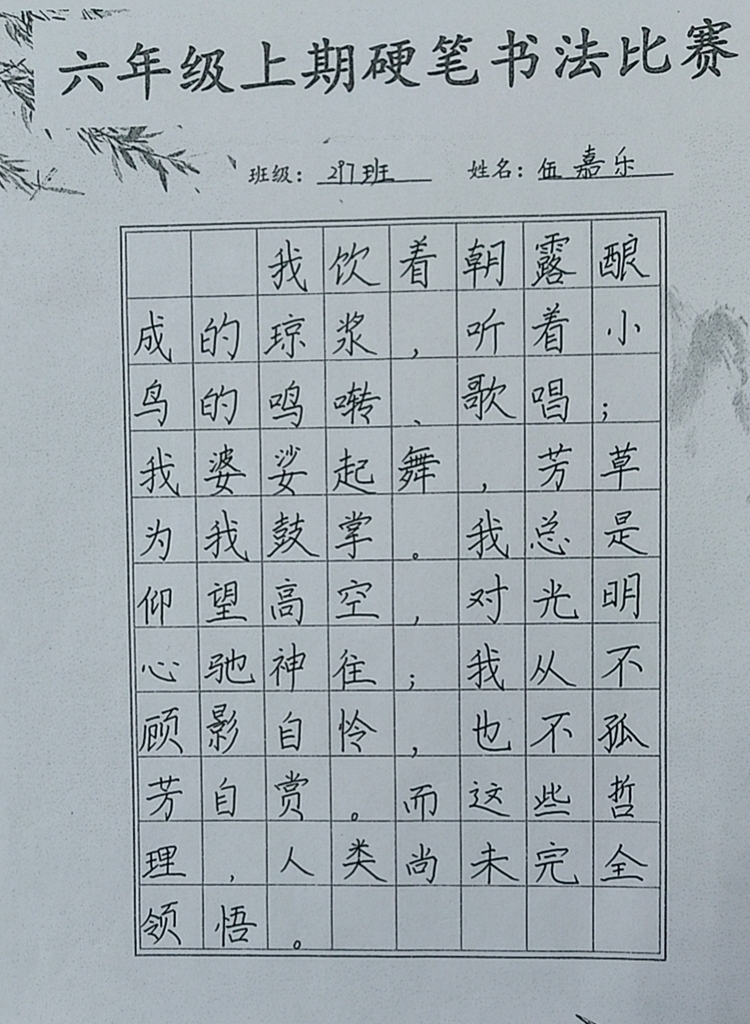 六年级上期硬笔书法比赛
班级：297班 姓名：伍嘉乐
我饮着朝露酿
成的琼浆，听着小
鸟的鸣啭、歌唱；
我婆娑起舞，芳草
为我鼓掌。我总是
仰望高空，对光明
心驰神往；我从不
顾影自怜，也不孤
芳自赏。而这些哲
理，人类尚未完全
领悟。